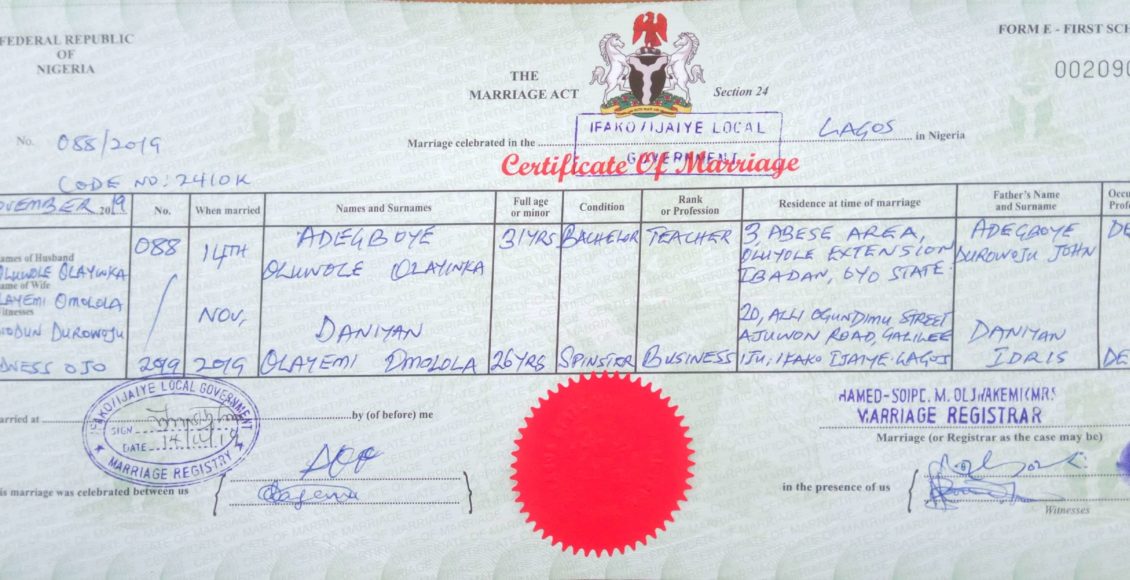 FEDERAL REPUBLIC
OF
NIGERIA
FORM E - FIRST SCH
002090
THE
MARRIAGE ACT
Section 24
No. 088/2019
Marriage celebrated in the IFAKO/IJAIYE LOCAL GOVERNMENT LAGOS in Nigeria
Certificate Of Marriage
CODE NO: 2410K
OVEMBER 2019
No.
When married
Names and Surnames
Full age
or minor
Condition
Rank
or Profession
Residence at time of marriage
Father's Name
and Surname
Occu
Profe
ames of Husband
OLUWOLE OLAYINKA
ame of Wife
LAYEMI OMOLOLA
itnesses
IODUN DUROWOJU
DNESS OJO
088
/
2019
14TH
NOV,
2019
ADEGBOYE
OLUWOLE OLAYINKA
31YRS
BACHELOR
TEACHER
3, ABESE AREA,
OLUYOLE EXTENSION
IBADAN, OYO STATE.
ADEGBOYE
DUROWOJU JOHN
DE
DANIYAN
OLAYEMI OMOLOLA
26YRS
SPINSTER
BUSINESS
20, ALLI OGUNDIMU STREET
AJUWON ROAD, GALILEE
IJU, IFAKO IJAIYE-LAGOS
DANIYAN
IDRIS
DE
IFAKO/IJAIYE LOCAL GOVERNMENT
SIGN
DATE 14/11/19
MARRIAGE REGISTRY
arried at
by (of before) me
HAMED-SOIPE. M. OLUWAKEMI (MRS
MARRIAGE REGISTRAR
Marriage (or Registrar as the case may be)
is marriage was celebrated between us
in the presence of us
Witnesses